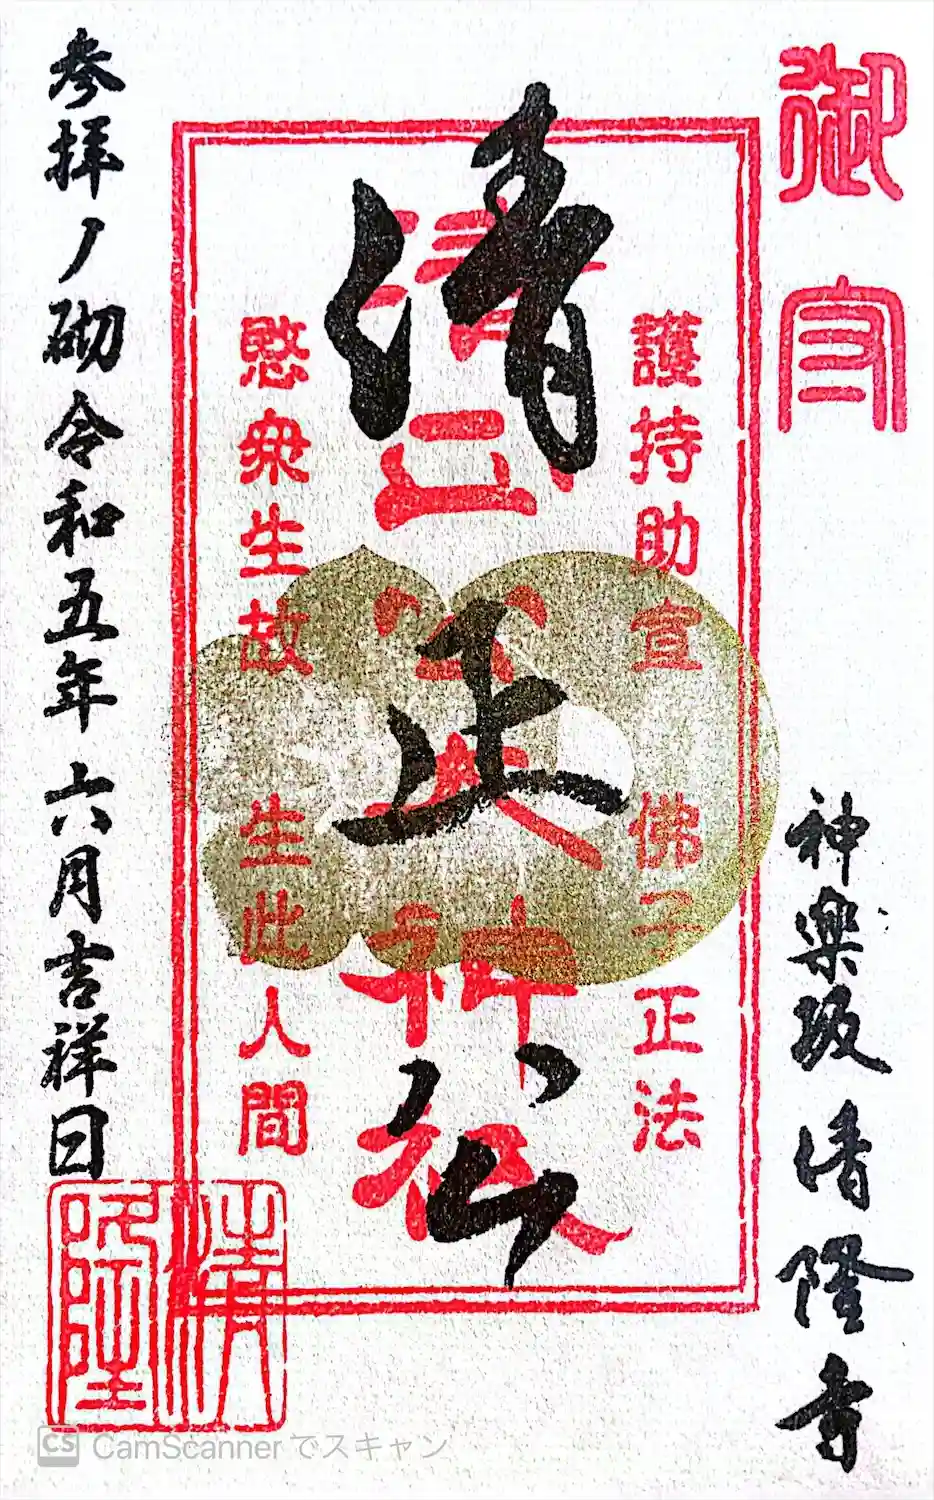 御守
神樂坂 清隆寺
護持助宣 佛子正法
清正公
清正公大神祇
愍衆生故 生此人間
参拝ノ砌 令和五年六月吉祥日
清隆
CS CamScanner でスキャン